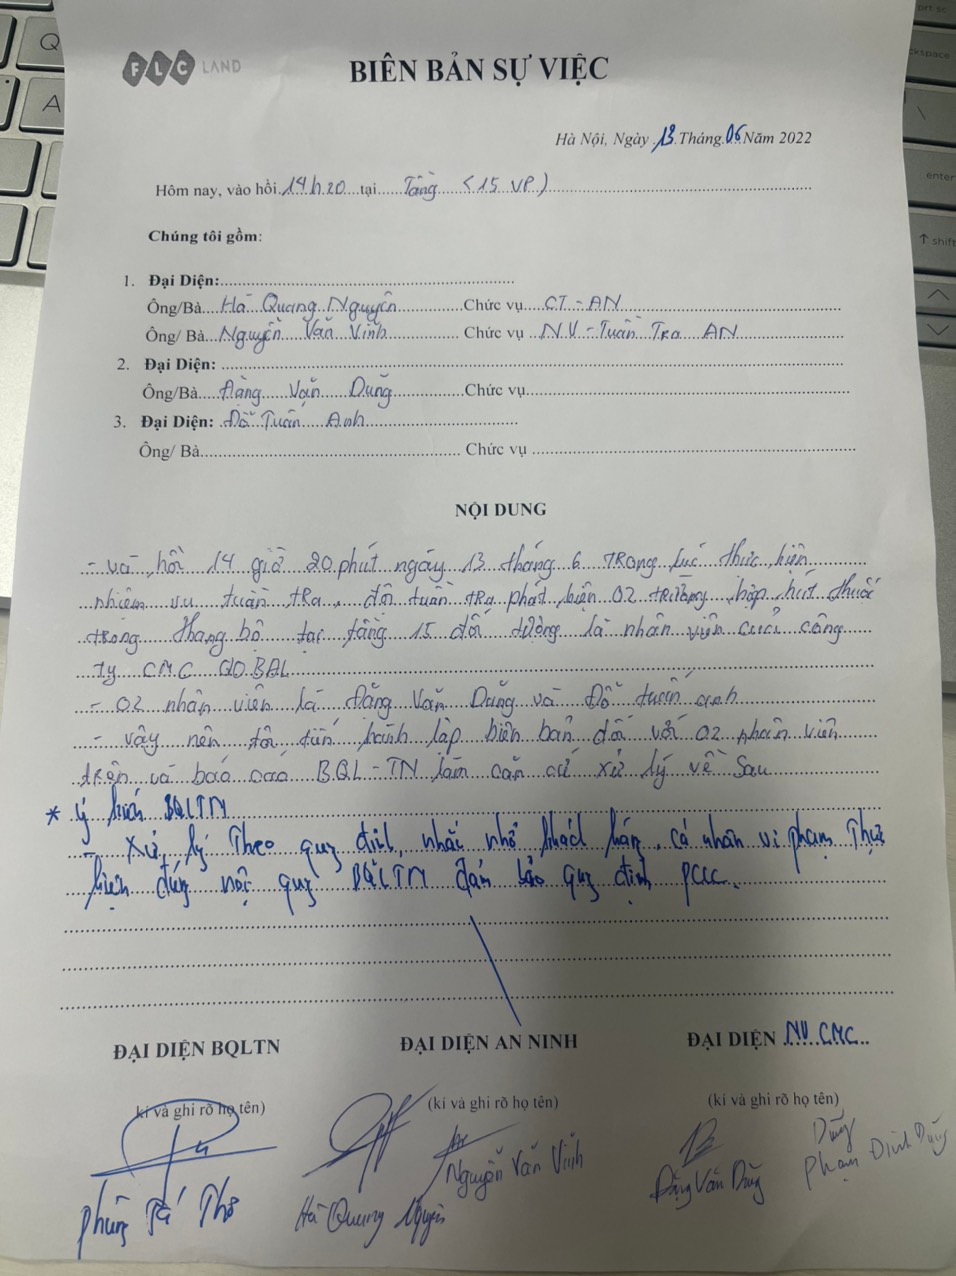 FLC LAND
BIÊN BẢN SỰ VIỆC
Hà Nội, Ngày 13 Tháng 06 Năm 2022
Hôm nay, vào hồi 14h20 tại Tầng (15 VP)
Chúng tôi gồm:
1. Đại Diện:
Ông/Bà Hà Quang Nguyên Chức vụ CT-AN
Ông/ Bà Nguyễn Văn Vinh Chức vụ NV-Tuần TRA AN
2. Đại Diện:
Ông/Bà Đặng Văn Dũng Chức vụ
3. Đại Diện: Đỗ Tuấn Anh
Ông/ Bà Chức vụ
NỘI DUNG
- và hồi 14 giờ 20 phút ngày 13 tháng 6 TRong lúc thực hiện
nhiệm vụ tuần tRa, đội tuần tRa phát hiện 02 tRường hợp hút thuốc
tRong thang bộ tại tầng 15 đối tượng là nhân viên của công
ty CMC GLOBAL
- 02 nhân viên là Đặng Văn Dũng và Đỗ tuấn anh
- vậy nên tôi tiến hành lập biên bản đối với 02 nhân viên
tRên và báo cáo BQL-TN làm căn cứ xử lý về sau
* Ý kiến BQLTN
- Xử lý Theo quy định, nhắc nhở khách hàng, cá nhân vi phạm Thực
hiện đúng nội quy BQLTN đảm bảo quy định PCCC.
ĐẠI DIỆN BQLTN ĐẠI DIỆN AN NINH ĐẠI DIỆN NV CMC
(kí và ghi rõ họ tên) (kí và ghi rõ họ tên) (kí và ghi rõ họ tên)
Dũng
Phùng Thơ Hà Quang Nguyên Nguyễn Văn Vinh Đặng Văn Dũng Phạm Đình Dũng